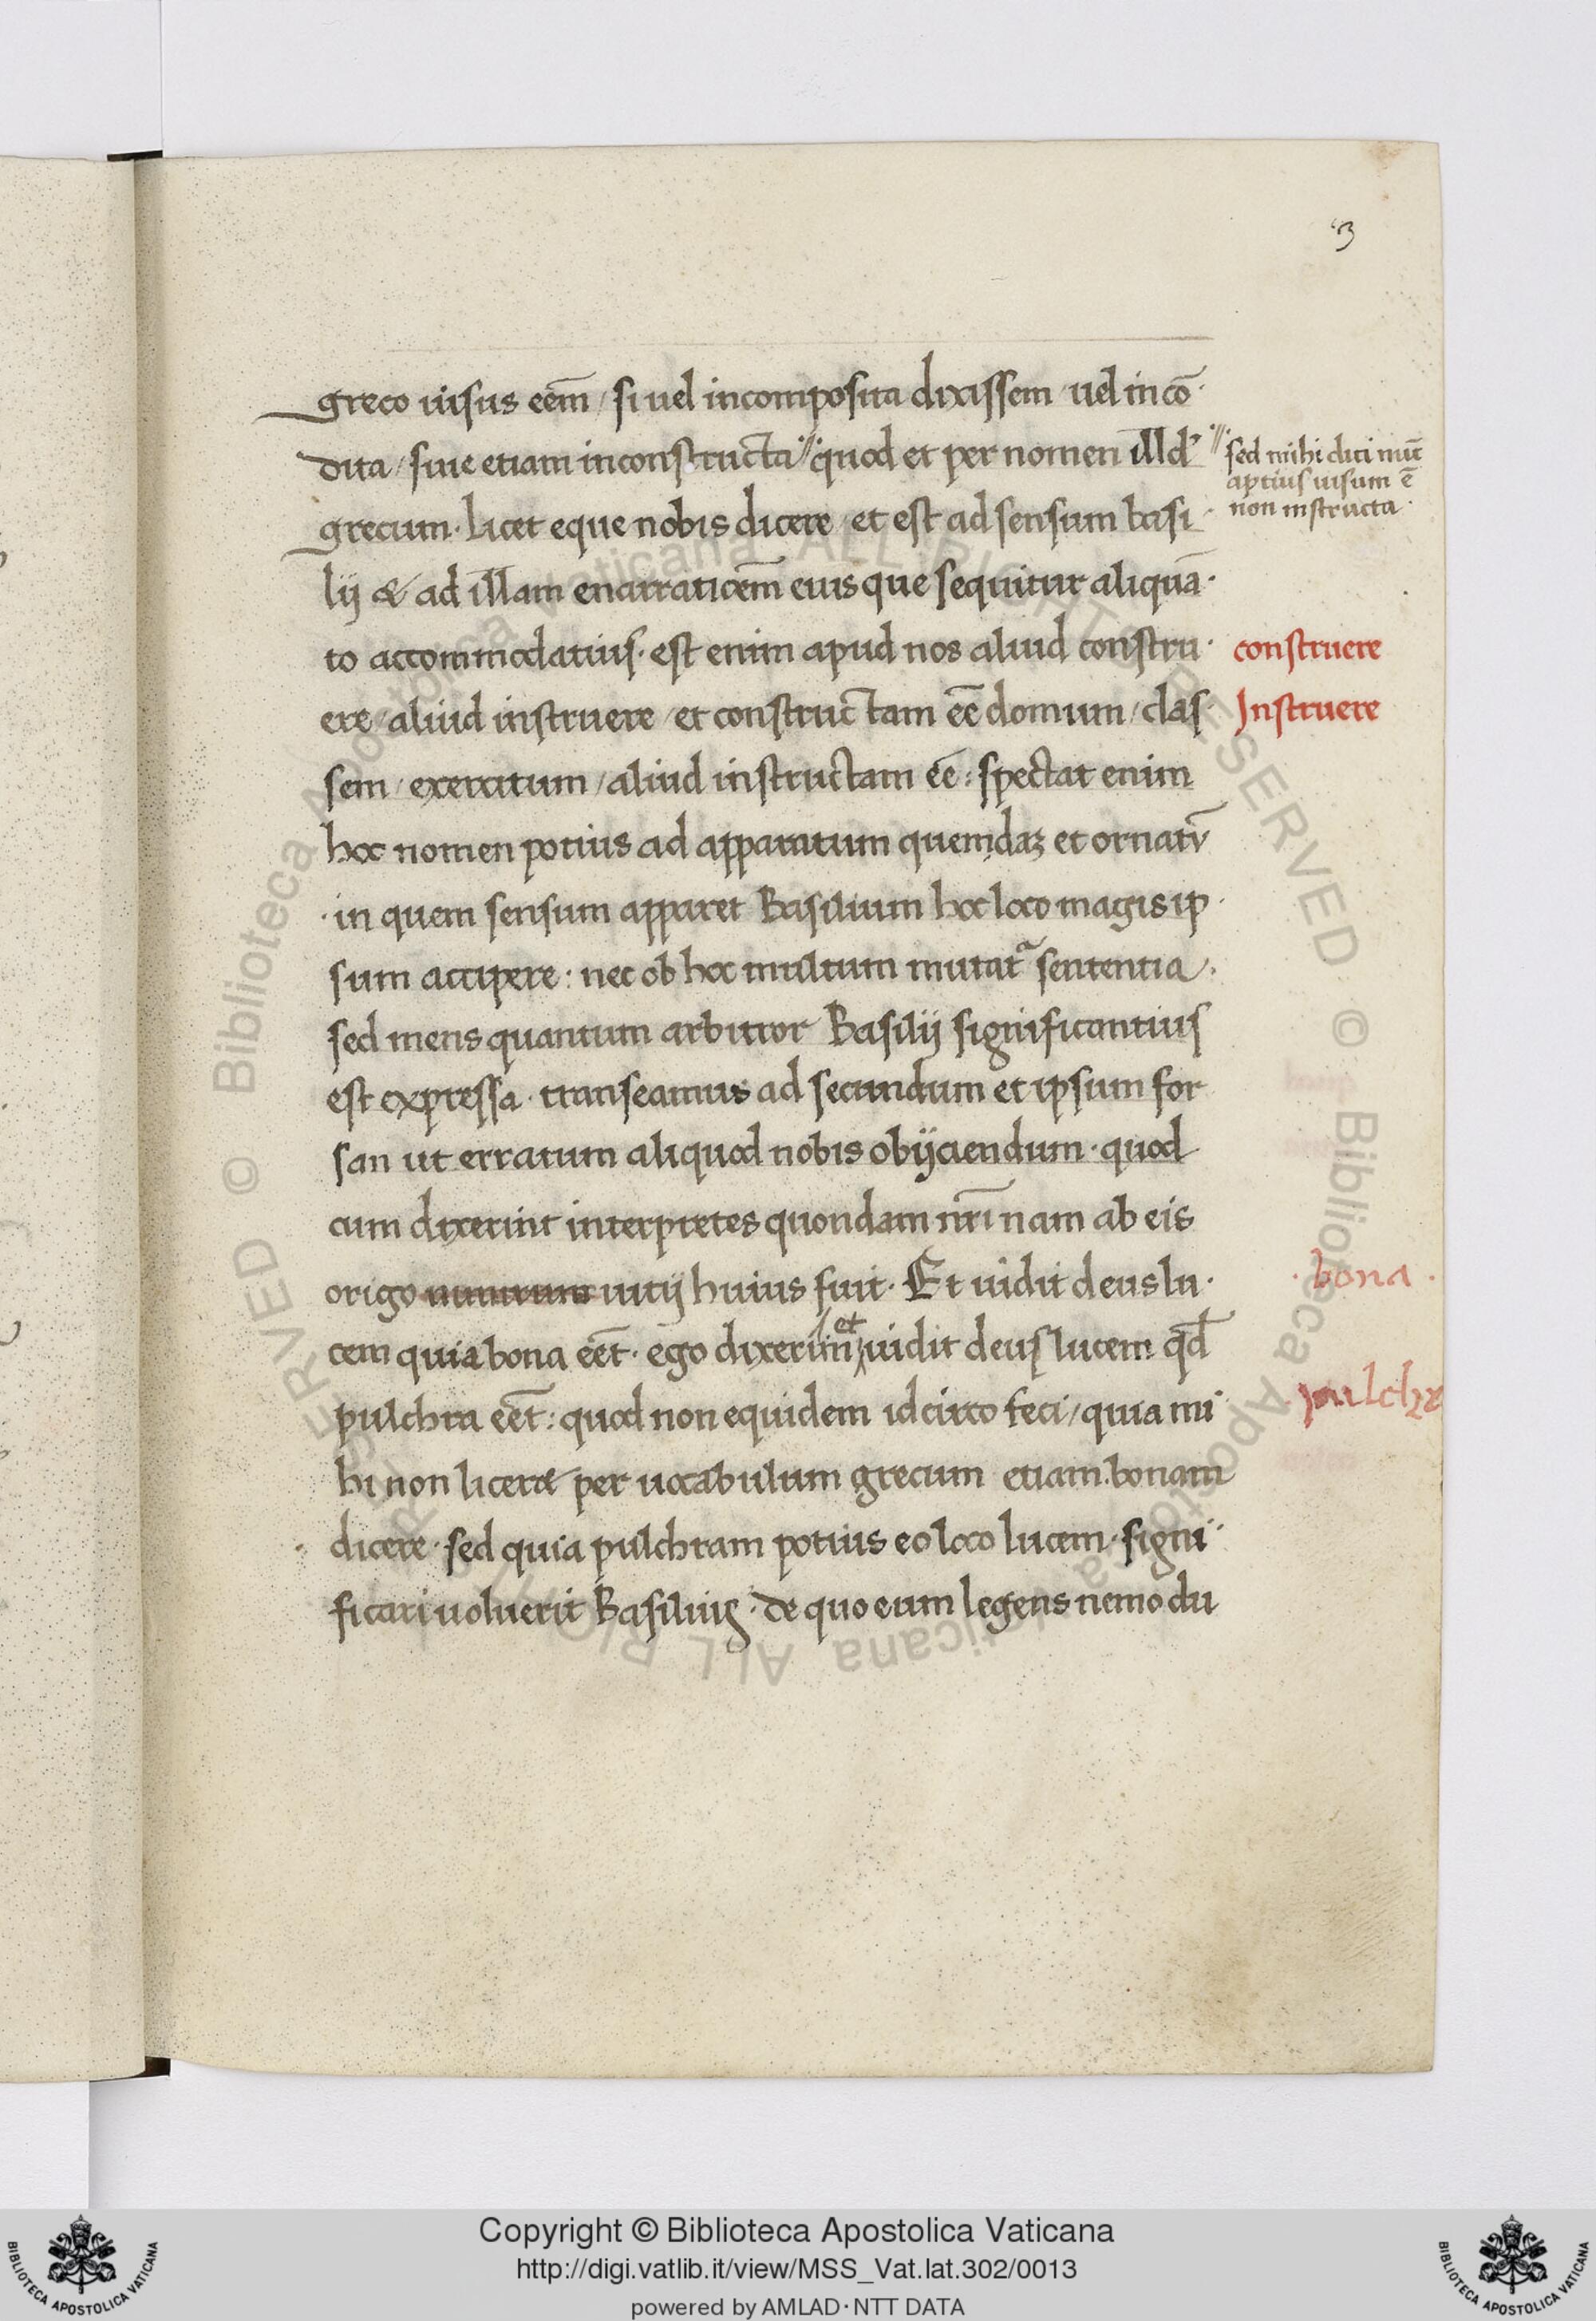 3
greco uisus eēm / si uel incomposita dixissem / uel incō·
dita / siue etiam inconstructa // quod et per nomen illd'
// sed mihi dici nūc
aptius uisum ē
non instructa ·
grecum · licet eque nobis dicere / et est ad sensum basi
lij & ad illam enarraticēm eius que sequitur aliquā·
to accommodatius · est enim apud nos aliud constru·
construere
ere / aliud instruere / et constructam eē domum / clas·
Instruere
sem / exercitum / aliud instructam eē : spectat enim
hoc nomen potius ad apparatum quemdaꝫ et ornatū
· in quem sensum apparet Basilium hoc loco magis ip·
sum accipere : nec ob hoc multum mutatᵃ sententia ·
sed mens quantum arbitror Basilij significantius
est expressa · transeamus ad secundum et ipsum for
san ut erratum aliquod nobis obijciendum · quod
cum dixerint interpretes quondam nr̄i nam ab eis
origo uitij huius fuit · Et uidit deus lu·
· bona ·
cem quia bona eēt · ego dixerim et uidit deus lucem qd̄
pulchra eēt : quod non equidem idcirco feci / quia mi·
pulchr
hi non liceret per uocabulum grecum etiam bonam
dicere · sed quia pulchram potius eo loco lucem · signi·
ficari uoluerit Basilius · de quo eum legens nemo du
Copyright © Biblioteca Apostolica Vaticana
http://digi.vatlib.it/view/MSS_Vat.lat.302/0013
powered by AMLAD·NTT DATA
BIBLIOTECA APOSTOLICA VATICANA
BIBLIOTECA APOSTOLICA VATICANA